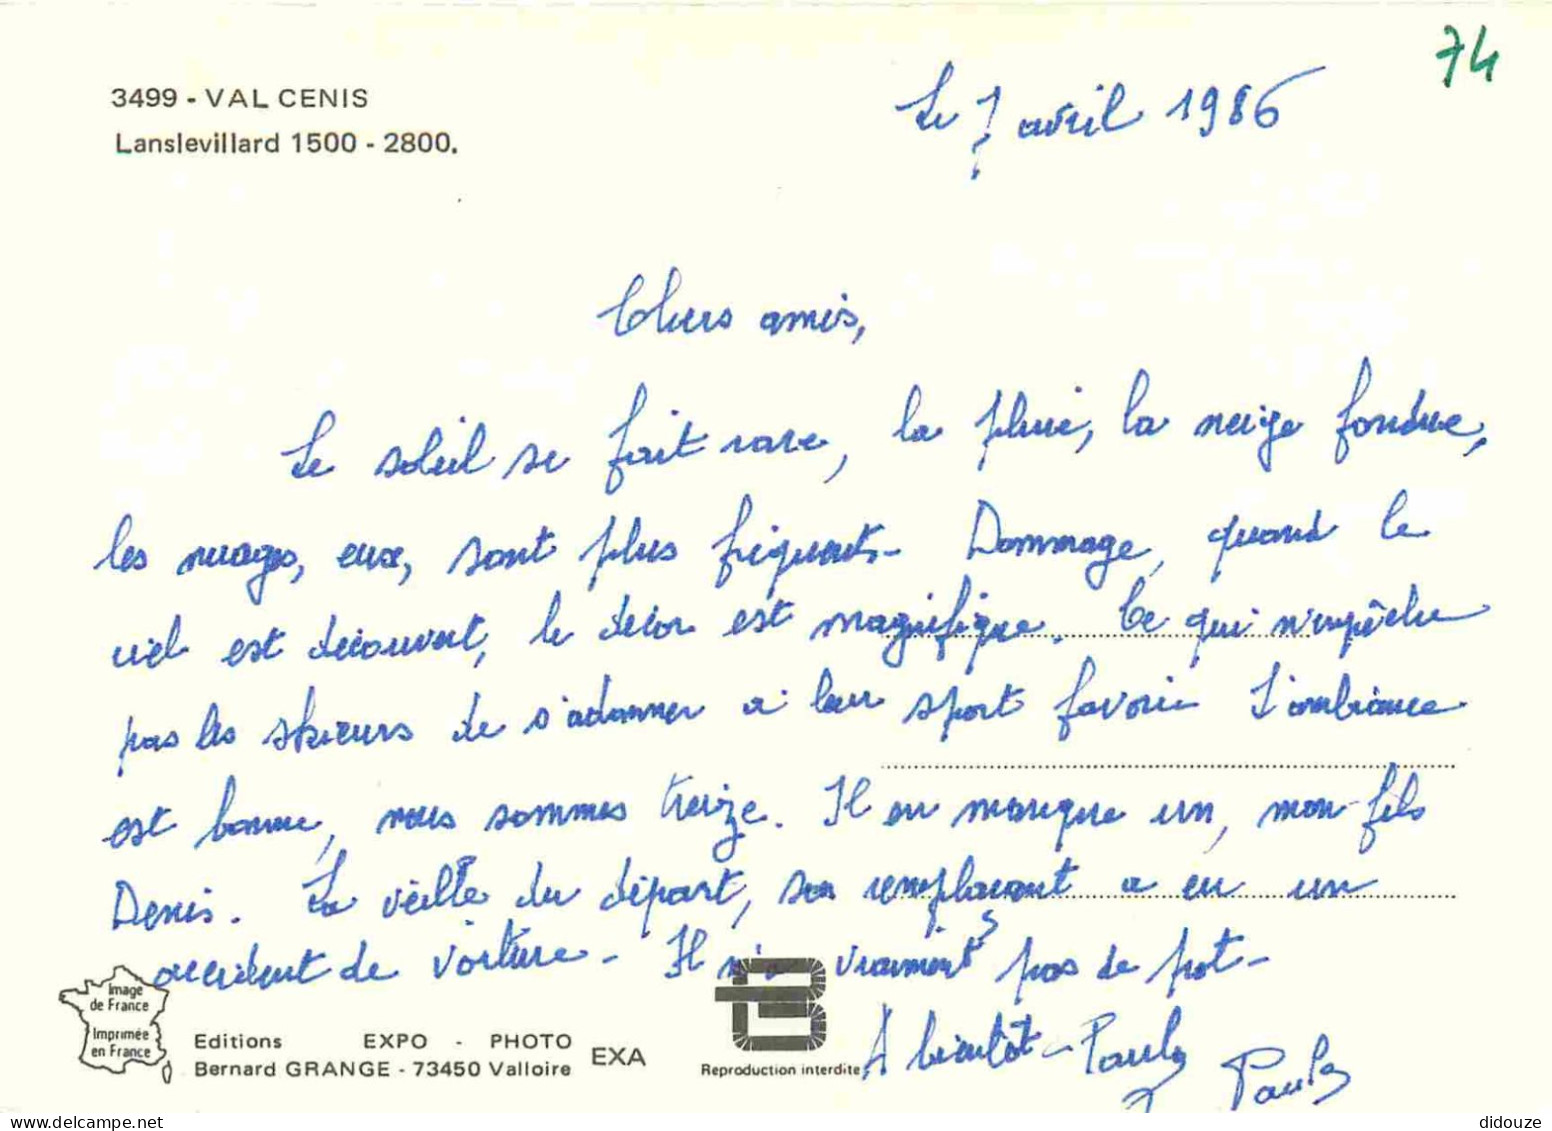 74
3499 - VAL CENIS
Lanslevillard 1500 - 2800.
Le 7 avril 1986
Chers amis,
Le soleil se fait rare, la pluie, la neige fondue,
les nuages, eux, sont plus fréquents - Dommage, quand le
ciel est découvert, le décor est magnifique. Ce qui n'empêche
pas les skieurs de s'adonner à leur sport favori L'ambiance
est bonne, nous sommes treize. Il en manque un, mon fils
Denis. La veille du départ, son remplaçant a eu un
accident de voiture - Il n'a vraiment pas de pot -
A bientôt - Paula
Paula
Image
de France
Imprimée
en France
Editions EXPO - PHOTO
Bernard GRANGE - 73450 Valloire
EXA
Reproduction interdite
didouze